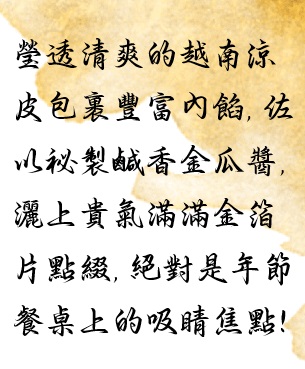 瑩透清爽的越南涼
皮包裹豐富內餡, 佐
以祕製鹹香金瓜醬,
灑上貴氣滿滿金箔
片點綴, 絕對是年節
餐桌上的吸睛焦點!